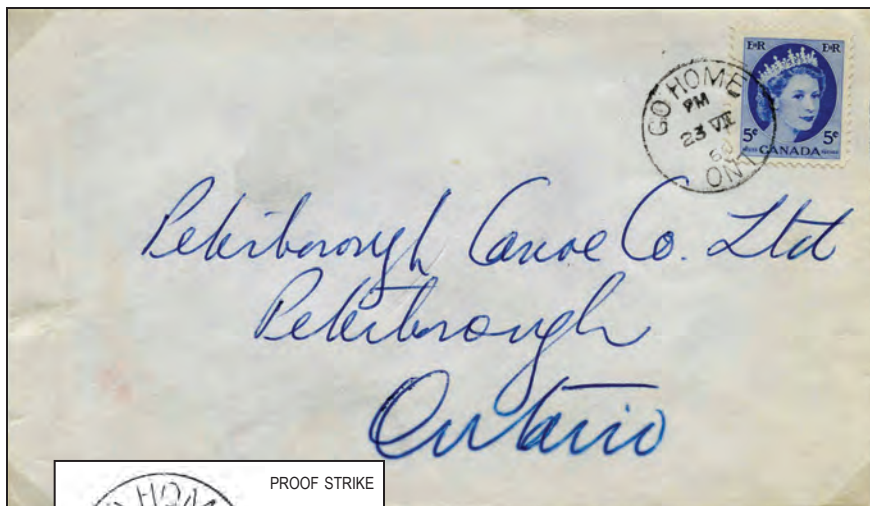 GO HOME
PM
23 VII
60
ONT
E R E R
5c 5c
CANADA
Peterborough Canoe Co. Ltd
Peterborough
Ontario
PROOF STRIKE
HOM